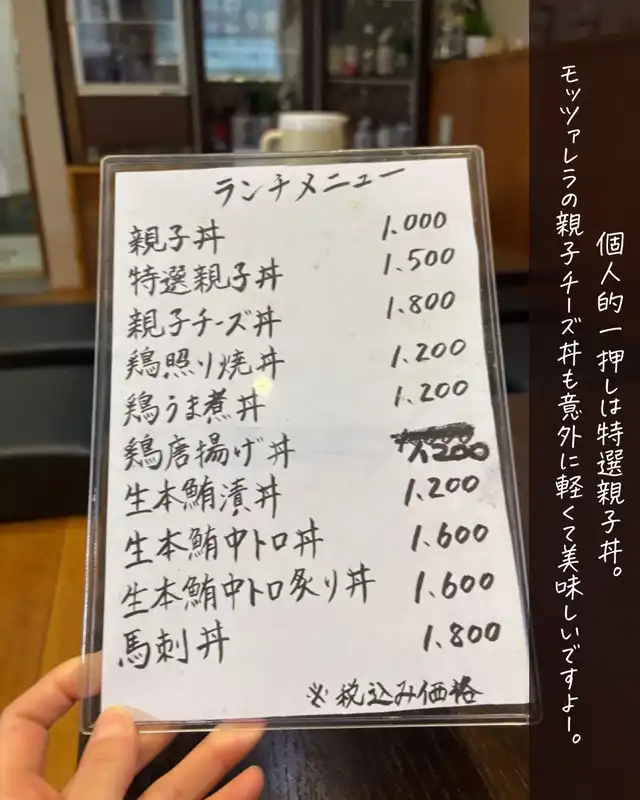 ランチメニュー
親子丼 1.000
特選親子丼 1.500
親子チーズ丼 1.800
鶏照り焼丼 1.200
鶏うま煮丼 1.200
鶏唐揚げ丼 1200
生本鮪漬丼 1.200
生本鮪中トロ丼 1.600
生本鮪中トロ炙り丼 1.600
馬刺丼 1.800
※税込み価格
個人的一押しは特選親子丼。
モッツァレラの親子チーズ丼も意外に軽くて美味しいですよー。